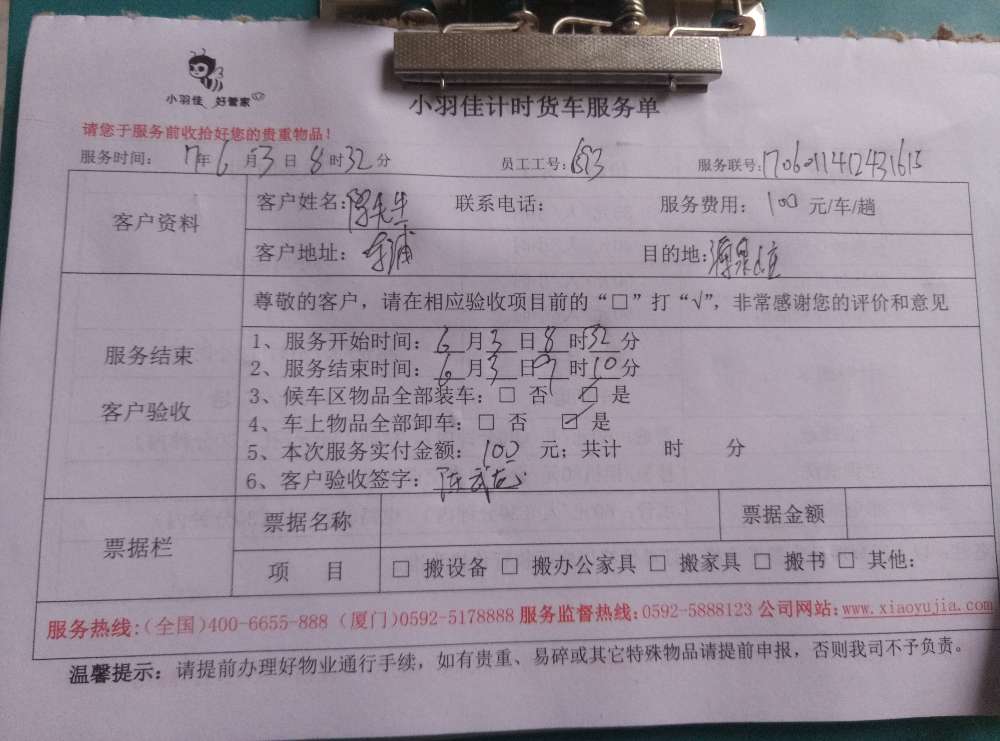 小羽佳 好管家
小羽佳计时货车服务单
请您于服务前收拾好您的贵重物品!
服务时间: 17年6月3日8时32分 员工工号: 服务联号:
客户资料 客户姓名:陈先生 联系电话: 服务费用: 100 元/车/趟
客户地址: 东浦 目的地:
尊敬的客户，请在相应验收项目前的“□”打“√”，非常感谢您的评价和意见
服务结束
客户验收
1、服务开始时间: 6月3日8时32分
2、服务结束时间: 6月3日9时10分
3、候车区物品全部装车:□ 否 □ 是
4、车上物品全部卸车:□ 否 ☑ 是
5、本次服务实付金额: 100 元; 共计 时 分
6、客户验收签字: 陈武
票据栏 票据名称 票据金额
项 目 □ 搬设备 □ 搬办公家具 □ 搬家具 □ 搬书 □ 其他:
服务热线:(全国)400-6655-888 (厦门)0592-5178888 服务监督热线:0592-5888123 公司网站:www.xiaoyujia.com
温馨提示: 请提前办理好物业通行手续，如有贵重、易碎或其它特殊物品请提前申报，否则我司不予负责。